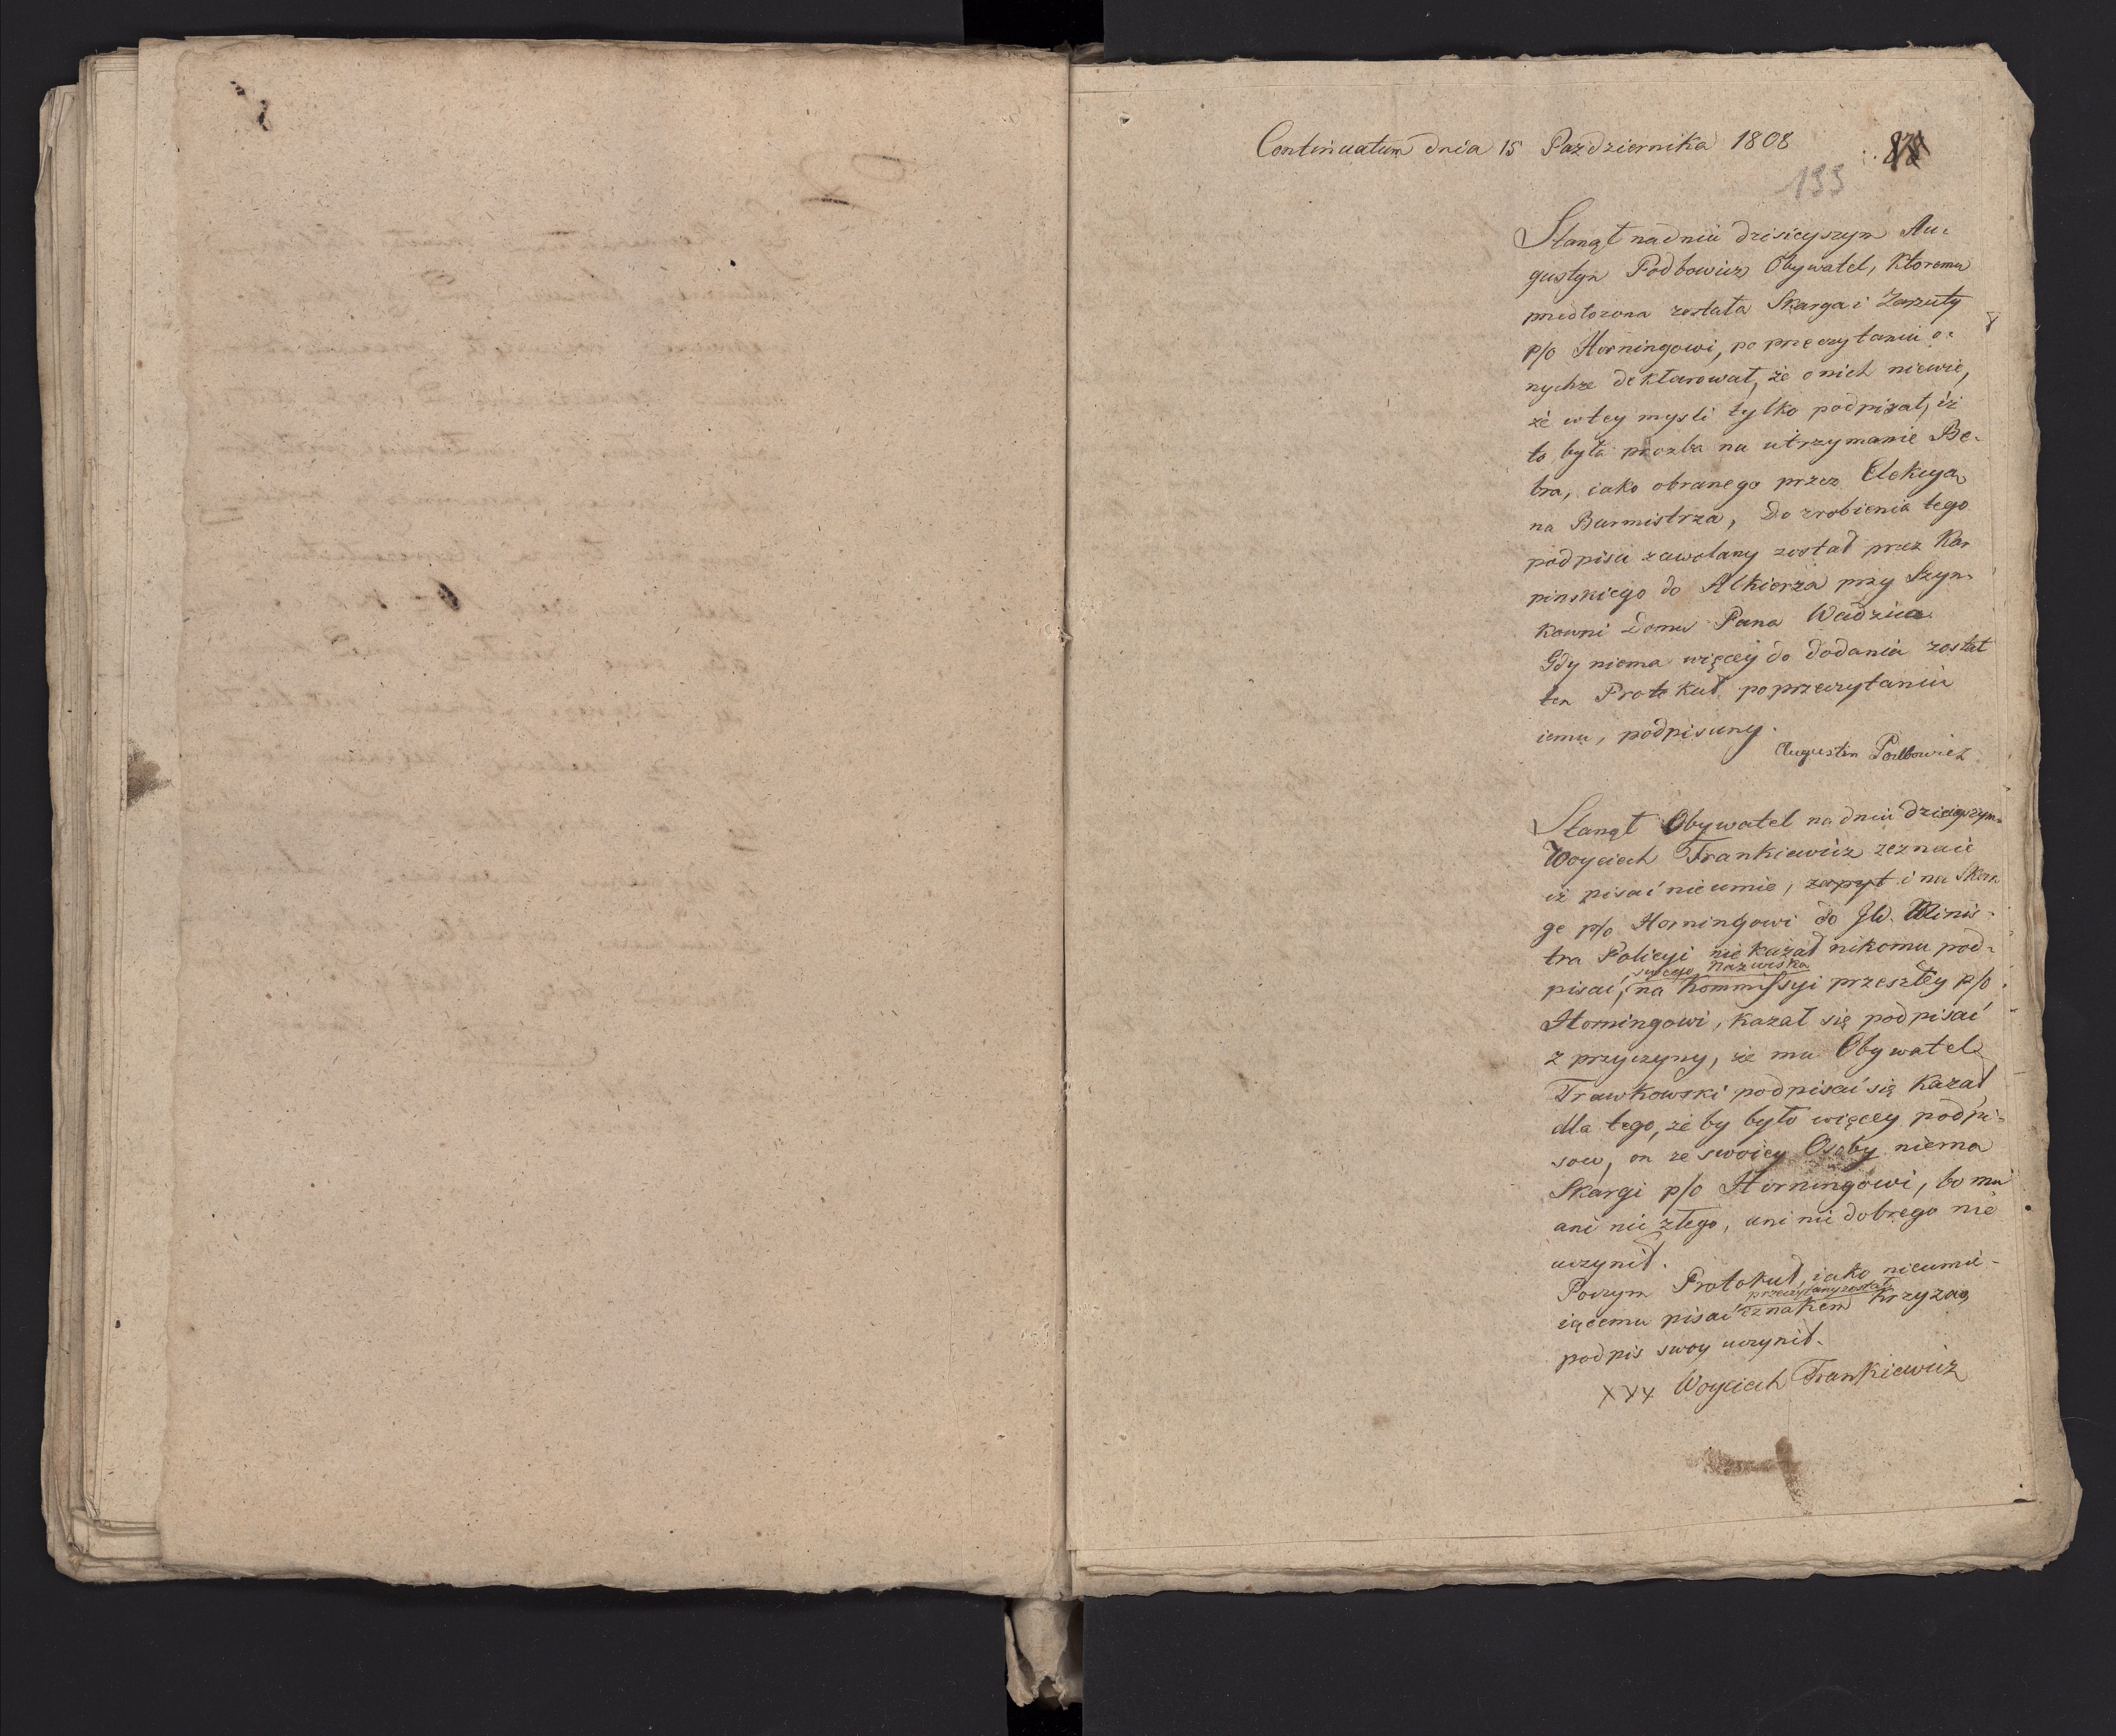 Continuatum dnia 15 Pazdziernika 1808
193
Stanął nadniu dzisieyszym Au-
gustyn Podbowicz Obywatel, ktoremu
przedłozona została Skarga i Zarzuty
p/o Horningowi, po przeczytaniu o-
nychze deklarował, że onich niewie,
że wtey mysli tylko podpisał, iż
to była prozba na utrzymanie Be-
tra, iako obranego przez Elekcyą
na Burmistrza, do zrobienia tego
podpisu zawołany został przez Kar
pinskiego do Alkierza przy Szyn-
kowni Domu Pana Wadzica
Gdy niema więcey do dodania został
ten Protokuł po przeczytaniu
iemu, podpisany.
Augustin Podbowicz
Stanął Obywatel na dniu dzisieyszym
Woyciech Frankiewicz zeznaie
iż pisać nieumie, i na Skar
gę p/o Horningowi do JW. Minis-
tra Policyi nie kazał nikomu pod-
swoiego nazwiska
pisać, na Kommissyi przeszłey p/o
Horningowi, kazał się podpisać
z przyczyny, że mu Obywatel
Trawkowski podpisać się kazał
dla tego, że by było więcey podpi-
sow, on ze swoiey Osoby niema
Skargi p/o Horningowi, bo mu
ani nic złego, ani nic dobrego nie
uczynił.
Poczym Protokuł, iako nieumie-
przeczytany został
iącemu pisać i znakem Krzyza
podpis swoy uczynił.
xxx Woyciech Frankiewicz